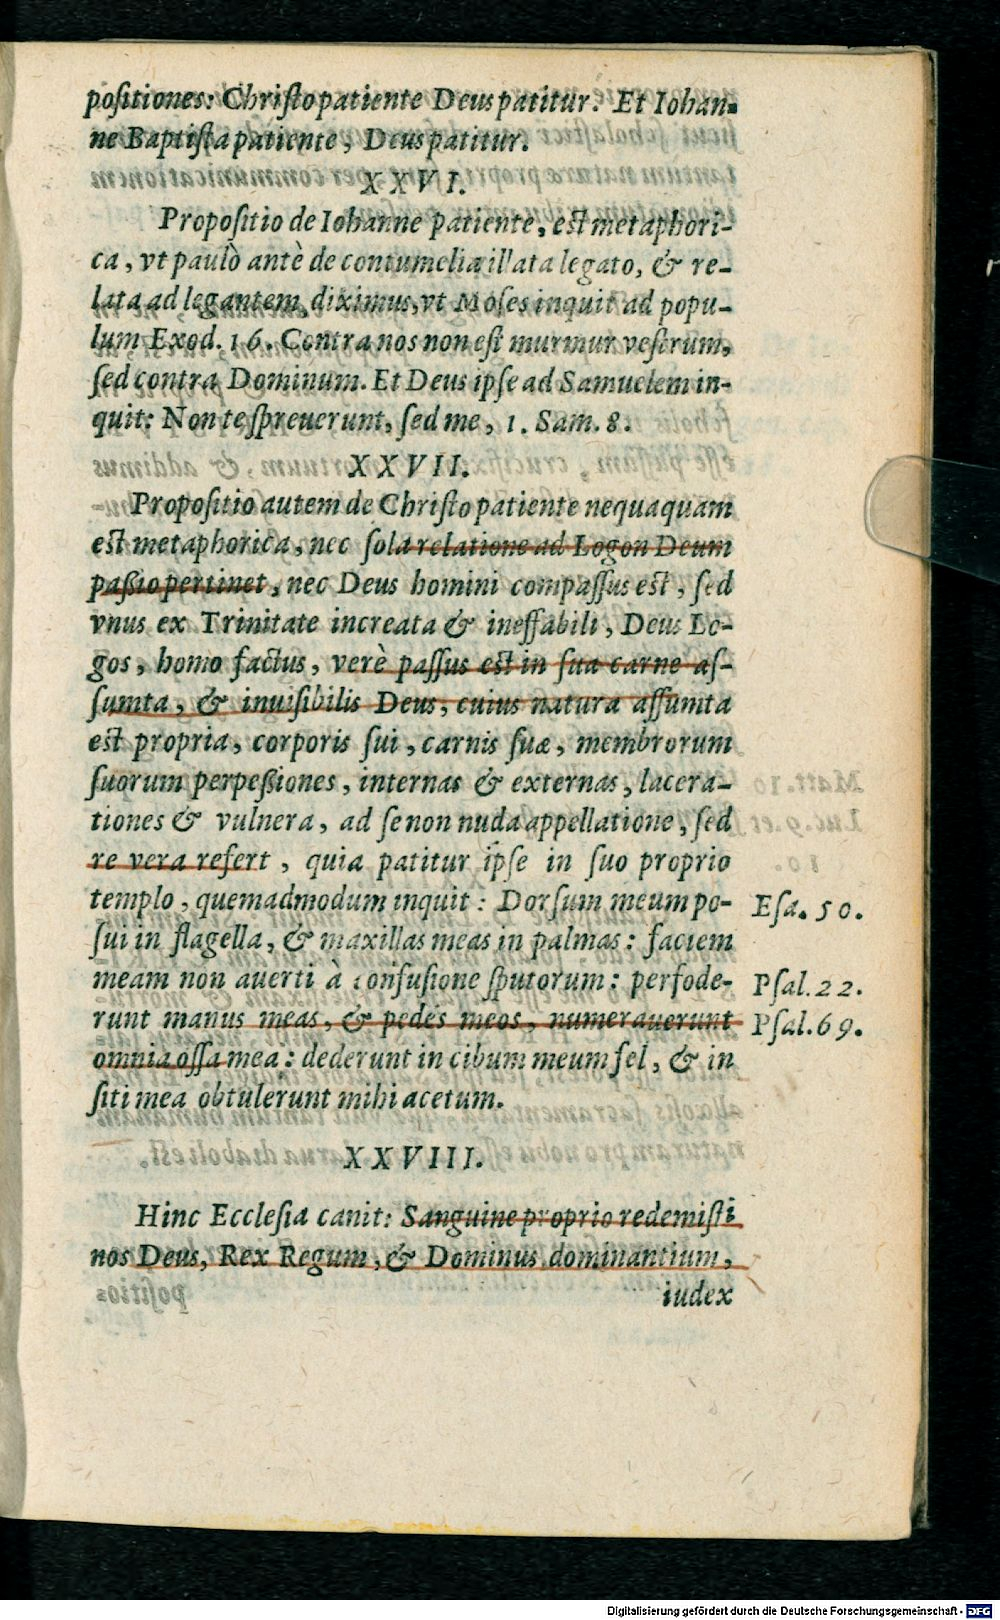 poſitiones: Chriſto patiente Deus patitur. Et Iohan-
ne Baptiſta patiente, Deus patitur.
XXVI.
Propoſitio de Iohanne patiente, est metaphori-
ca, vt paulò antè de contumelia illata legato, & re-
lata ad legantem, diximus, vt Moſes inquit ad popu-
lum Exod. 16. Contra nos non eſt murmur veſtrum,
ſed contra Dominum. Et Deus ipſe ad Samuelem in-
quit: Non te ſpreuerunt, ſed me, 1. Sam. 8.
XXVII.
Propoſitio autem de Chriſto patiente nequaquam
est metaphorica, nec ſola relatione ad Logon Deum
paßio pertinet, nec Deus homini compaſſus est, ſed
vnus ex Trinitate increata & ineffabili, Deus Lo-
gos, homo factus, verè paſſus est in ſua carne aſ-
ſumta, & inuiſibilis Deus, cuius natura aſſumta
est propria, corporis ſui, carnis ſuæ, membrorum
ſuorum perpeßiones, internas & externas, lacera-
tiones & vulnera, ad ſe non nuda appellatione, ſed
re vera refert, quia patitur ipſe in ſuo proprio
templo, quemadmodum inquit: Dorſum meum po-
Eſa. 50.
ſui in flagella, & maxillas meas in palmas: faciem
meam non auerti à confuſione ſputorum: perfode-
Pſal. 22.
runt manus meas, & pedes meos, numerauerunt
Pſal. 69.
omnia oſſa mea: dederunt in cibum meum fel, & in
ſiti mea obtulerunt mihi acetum.
XXVIII.
Hinc Eccleſia canit: Sanguine proprio redemiſti
nos Deus, Rex Regum, & Dominus dominantium,
iudex
Digitalisierung gefördert durch die Deutsche Forschungsgemeinschaft - DFG